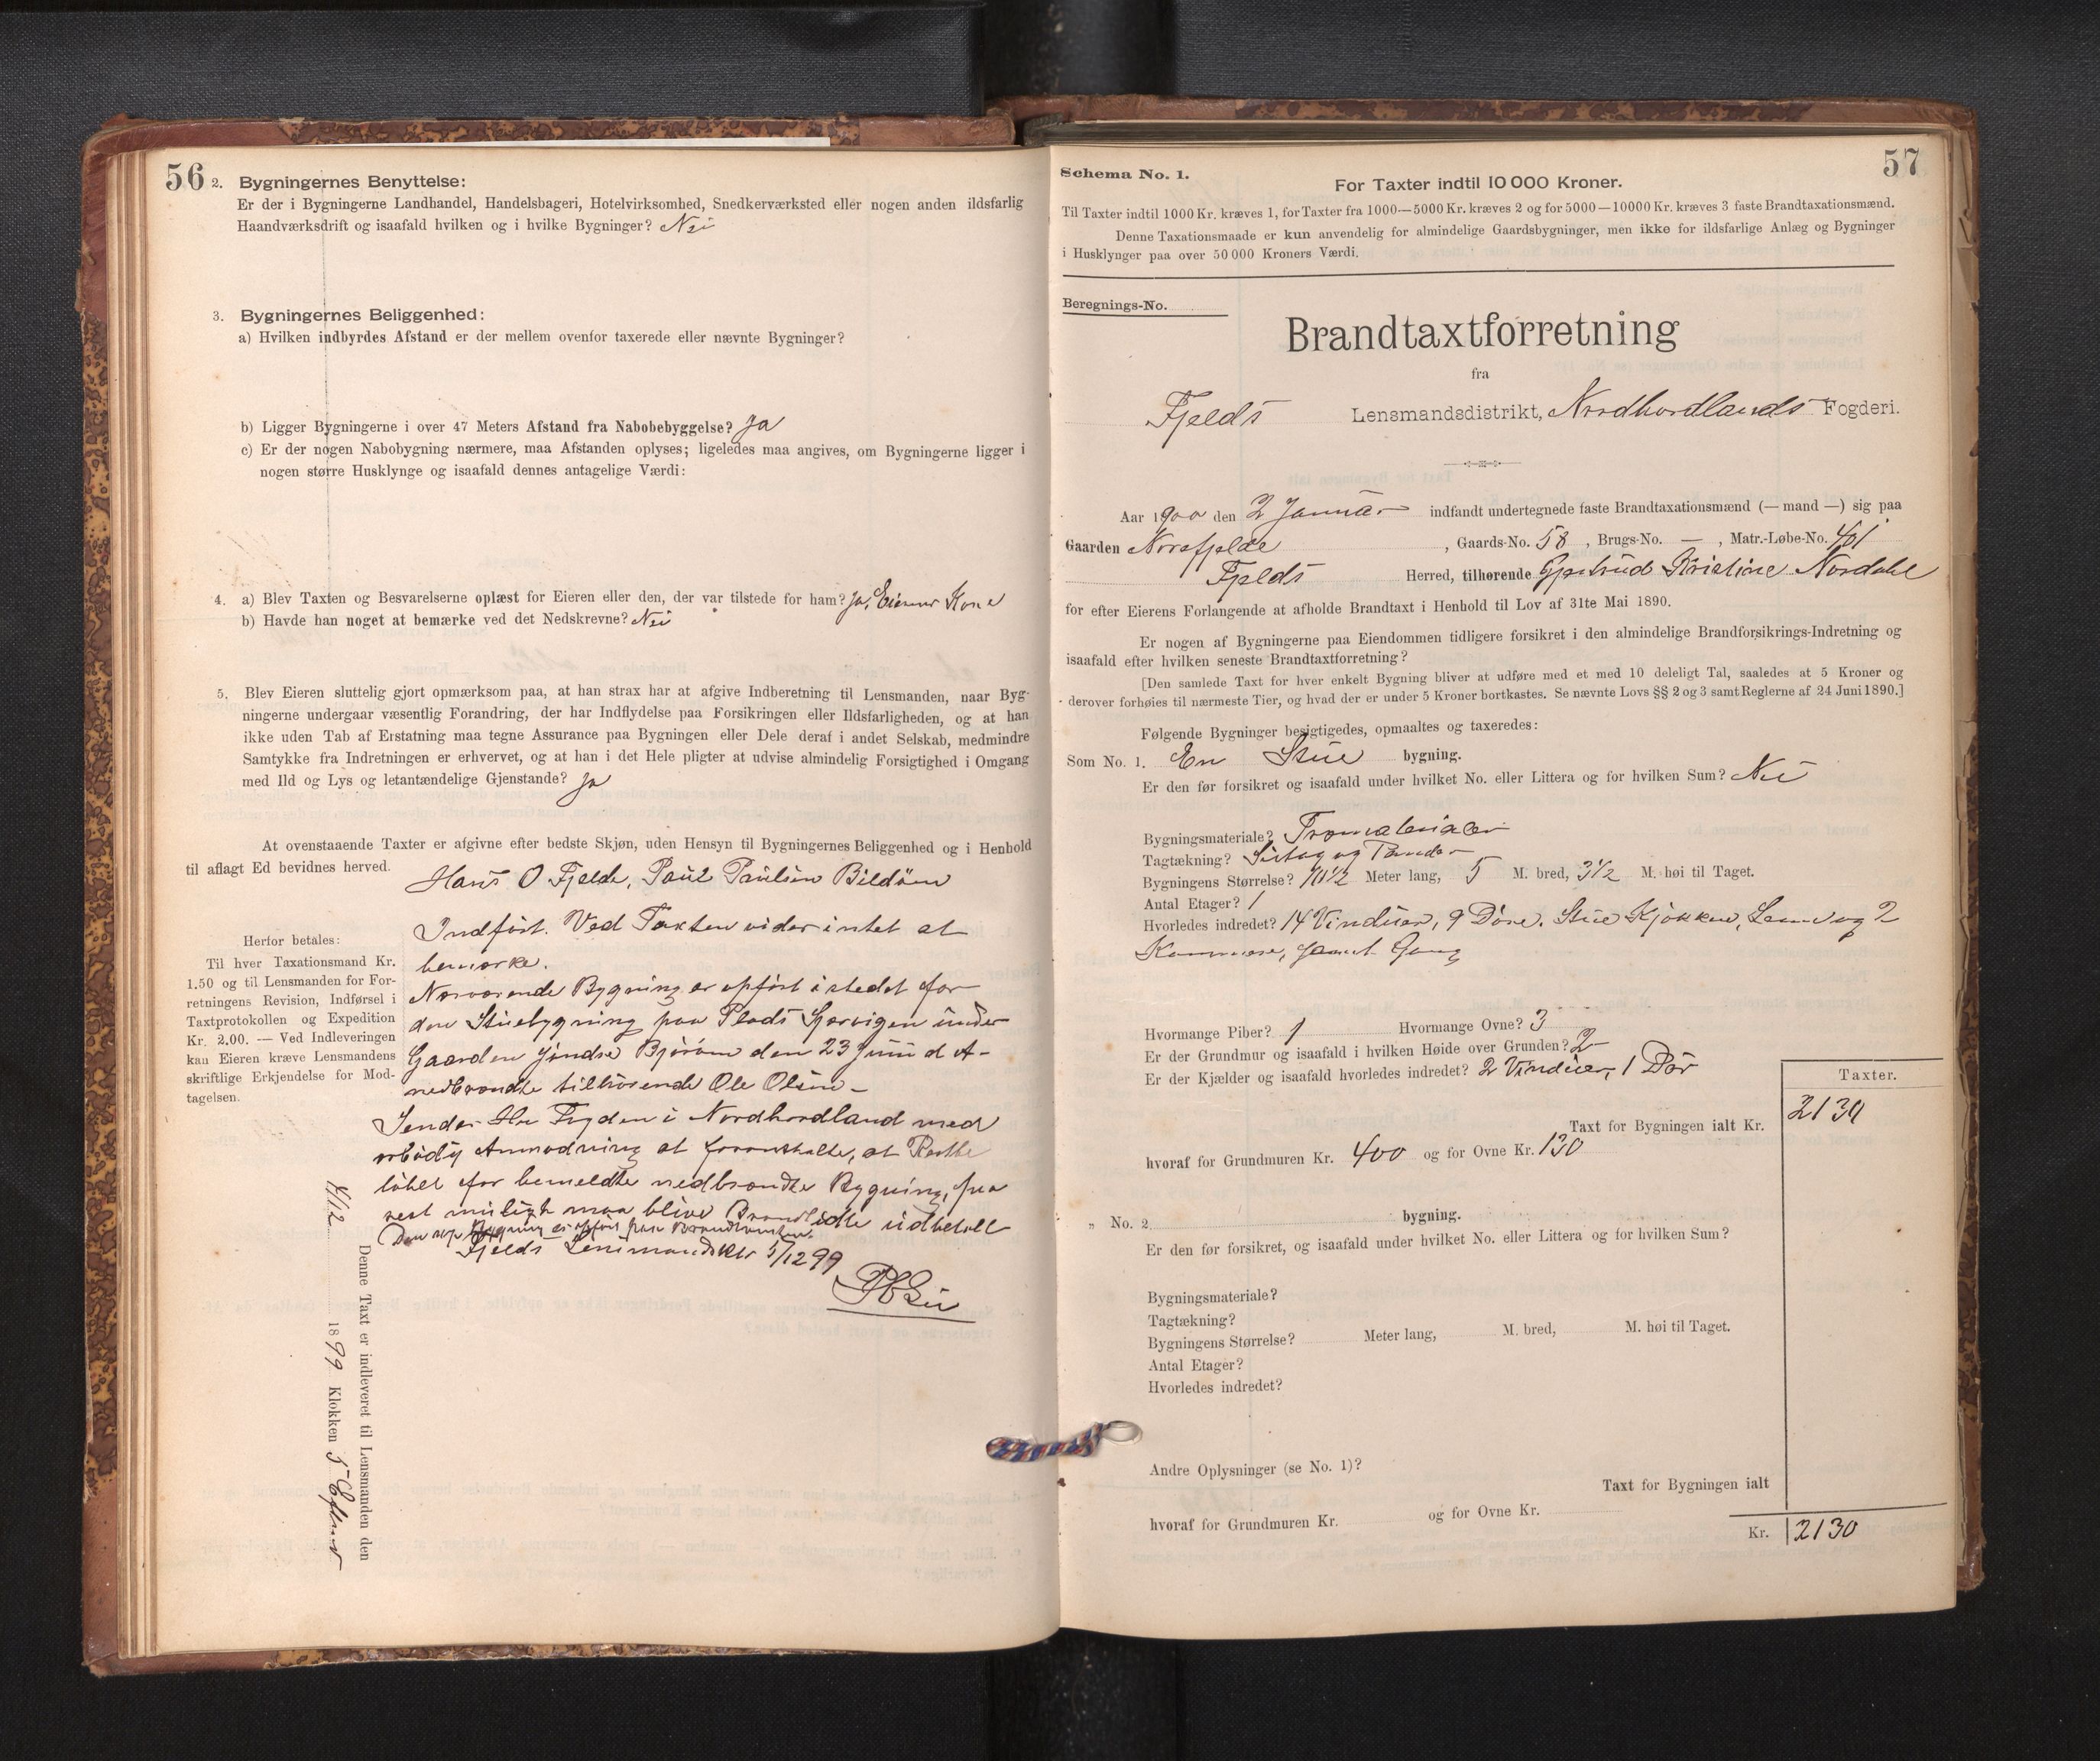 56
2. Bygningernes Benyttelse:
Er der i Bygningerne Landhandel, Handelsbageri, Hotelvirksomhed, Snedkerværksted eller nogen anden ildsfarlig
Haandværksdrift og isaafald hvilken og i hvilke Bygninger? Nei
3. Bygningernes Beliggenhed:
a) Hvilken indbyrdes Afstand er der mellem ovenfor taxerede eller nævnte Bygninger?
b) Ligger Bygningerne i over 47 Meters Afstand fra Nabobebyggelse? Ja
c) Er der nogen Nabobygning nærmere, maa Afstanden oplyses; ligeledes maa angives, om Bygningerne ligger i
nogen større Husklynge og isaafald dennes antagelige Værdi:
4. a) Blev Taxten og Besvarelserne oplæst for Eieren eller den, der var tilstede for ham? Ja, Eierens Kone
b) Havde han noget at bemærke ved det Nedskrevne? Nei
5. Blev Eieren sluttelig gjort opmærksom paa, at han strax har at afgive Indberetning til Lensmanden, naar Byg-
ningerne undergaar væsentlig Forandring, der har Indflydelse paa Forsikringen eller Ildsfarligheden, og at han
ikke uden Tab af Erstatning maa tegne Assurance paa Bygningen eller Dele deraf i andet Selskab, medmindre
Samtykke fra Indretningen er erhvervet, og at han i det Hele pligter at udvise almindelig Forsigtighed i Omgang
med Ild og Lys og letantændelige Gjenstande? Ja
At ovenstaaende Taxter er afgivne efter bedste Skjøn, uden Hensyn til Bygningernes Beliggenhed og i Henhold
til aflagt Ed bevidnes herved.
Hans O Fjelde, Poul Paulsen Bildöen
Indført. Ved Taxten vides intet at
bemærke.
Nærværende Bygning er opført istedet for
den Stuebygning paa Plads under
Gaarden Björöen den 23 Juni d A
nedbrændte tilhörende Ole Olsen
Sendes Hr Fogden i Nordhordland med
ærbödig Anmodning at foranstalte, at Restbe
löbet for bemeldte nedbrændte Bygning, saa
vest muligt maa blive Brandlidte udbetalt
Den nye Bygning er opført paa Brandtomten.
Fjelds Lensmands 5/12 99
Herfor betales:
Til hver Taxationsmand Kr.
1.50 og til Lensmanden for For-
retningens Revision, Indførsel i
Taxtprotokollen og Expedition
Kr. 2.00. — Ved Indleveringen
kan Eieren kræve Lensmandens
skriftlige Erkjendelse for Mod-
tagelsen.
Denne Taxt er indleveret til Lensmanden den
4/12 1899 Klokken 5 Efterm
57
Schema No. 1.
For Taxter indtil 10 000 Kroner.
Til Taxter indtil 1000 Kr. kræves 1, for Taxter fra 1000—5000 Kr. kræves 2 og for 5000—10000 Kr. kræves 3 faste Brandtaxationsmænd.
Denne Taxationsmaade er kun anvendelig for almindelige Gaardsbygninger, men ikke for ildsfarlige Anlæg og Bygninger
i Husklynger paa over 50 000 Kroners Værdi.
Beregnings-No.
Brandtaxtforretning
fra
Fjelds Lensmandsdistrikt, Nordhordlands Fogderi.
Aar 1900 den 2 Januar indfandt undertegnede faste Brandtaxationsmænd (— mand —) sig paa
Gaarden Norefjelde, Gaards-No. 58, Brugs-No. —, Matr.-Løbe-No. 401
Fjelds Herred, tilhørende Gjertrud Kristine Nordahl
for efter Eierens Forlangende at afholde Brandtaxt i Henhold til Lov af 31te Mai 1890.
Er nogen af Bygningerne paa Eiendommen tidligere forsikret i den almindelige Brandforsikrings-Indretning og
isaafald efter hvilken seneste Brandtaxtforretning?
[Den samlede Taxt for hver enkelt Bygning bliver at udføre med et med 10 deleligt Tal, saaledes at 5 Kroner og
derover forhøies til nærmeste Tier, og hvad der er under 5 Kroner bortkastes. Se nævnte Lovs §§ 2 og 3 samt Reglerne af 24 Juni 1890.]
Følgende Bygninger besigtigedes, opmaaltes og taxeredes:
Som No. 1. En Stue bygning.
Er den før forsikret og isaafald under hvilket No. eller Littera og for hvilken Sum? Nei
Bygningsmateriale? Træmaterialer
Tagtækning? og Pander
Bygningens Størrelse? 10 1/2 Meter lang, 5 M. bred, 3 1/2 M. høi til Taget.
Antal Etager? 1
Hvorledes indredet? 14 Vinduer, 9 Döre. Stue Kjökken, og 2
Kammere, samt Gang
Hvormange Piber? 1 Hvormange Ovne? 3
Er der Grundmur og isaafald i hvilken Høide over Grunden? 2
Er der Kjælder og isaafald hvorledes indredet? 2 Vinduer, 1 Dör
Taxter.
Taxt for Bygningen ialt Kr. 2130
hvoraf for Grundmuren Kr. 400 og for Ovne Kr. 130
„ No. 2 bygning.
Er den før forsikret, og isaafald under hvilket No. eller Littera og for hvilken Sum?
Bygningsmateriale?
Tagtækning?
Bygningens Størrelse? Meter lang, M. bred, M. høi til Taget.
Antal Etager?
Hvorledes indredet?
Andre Oplysninger (se No. 1)?
Taxt for Bygningen ialt
hvoraf for Grundmuren Kr. og for Ovne Kr.
Kr. 2130